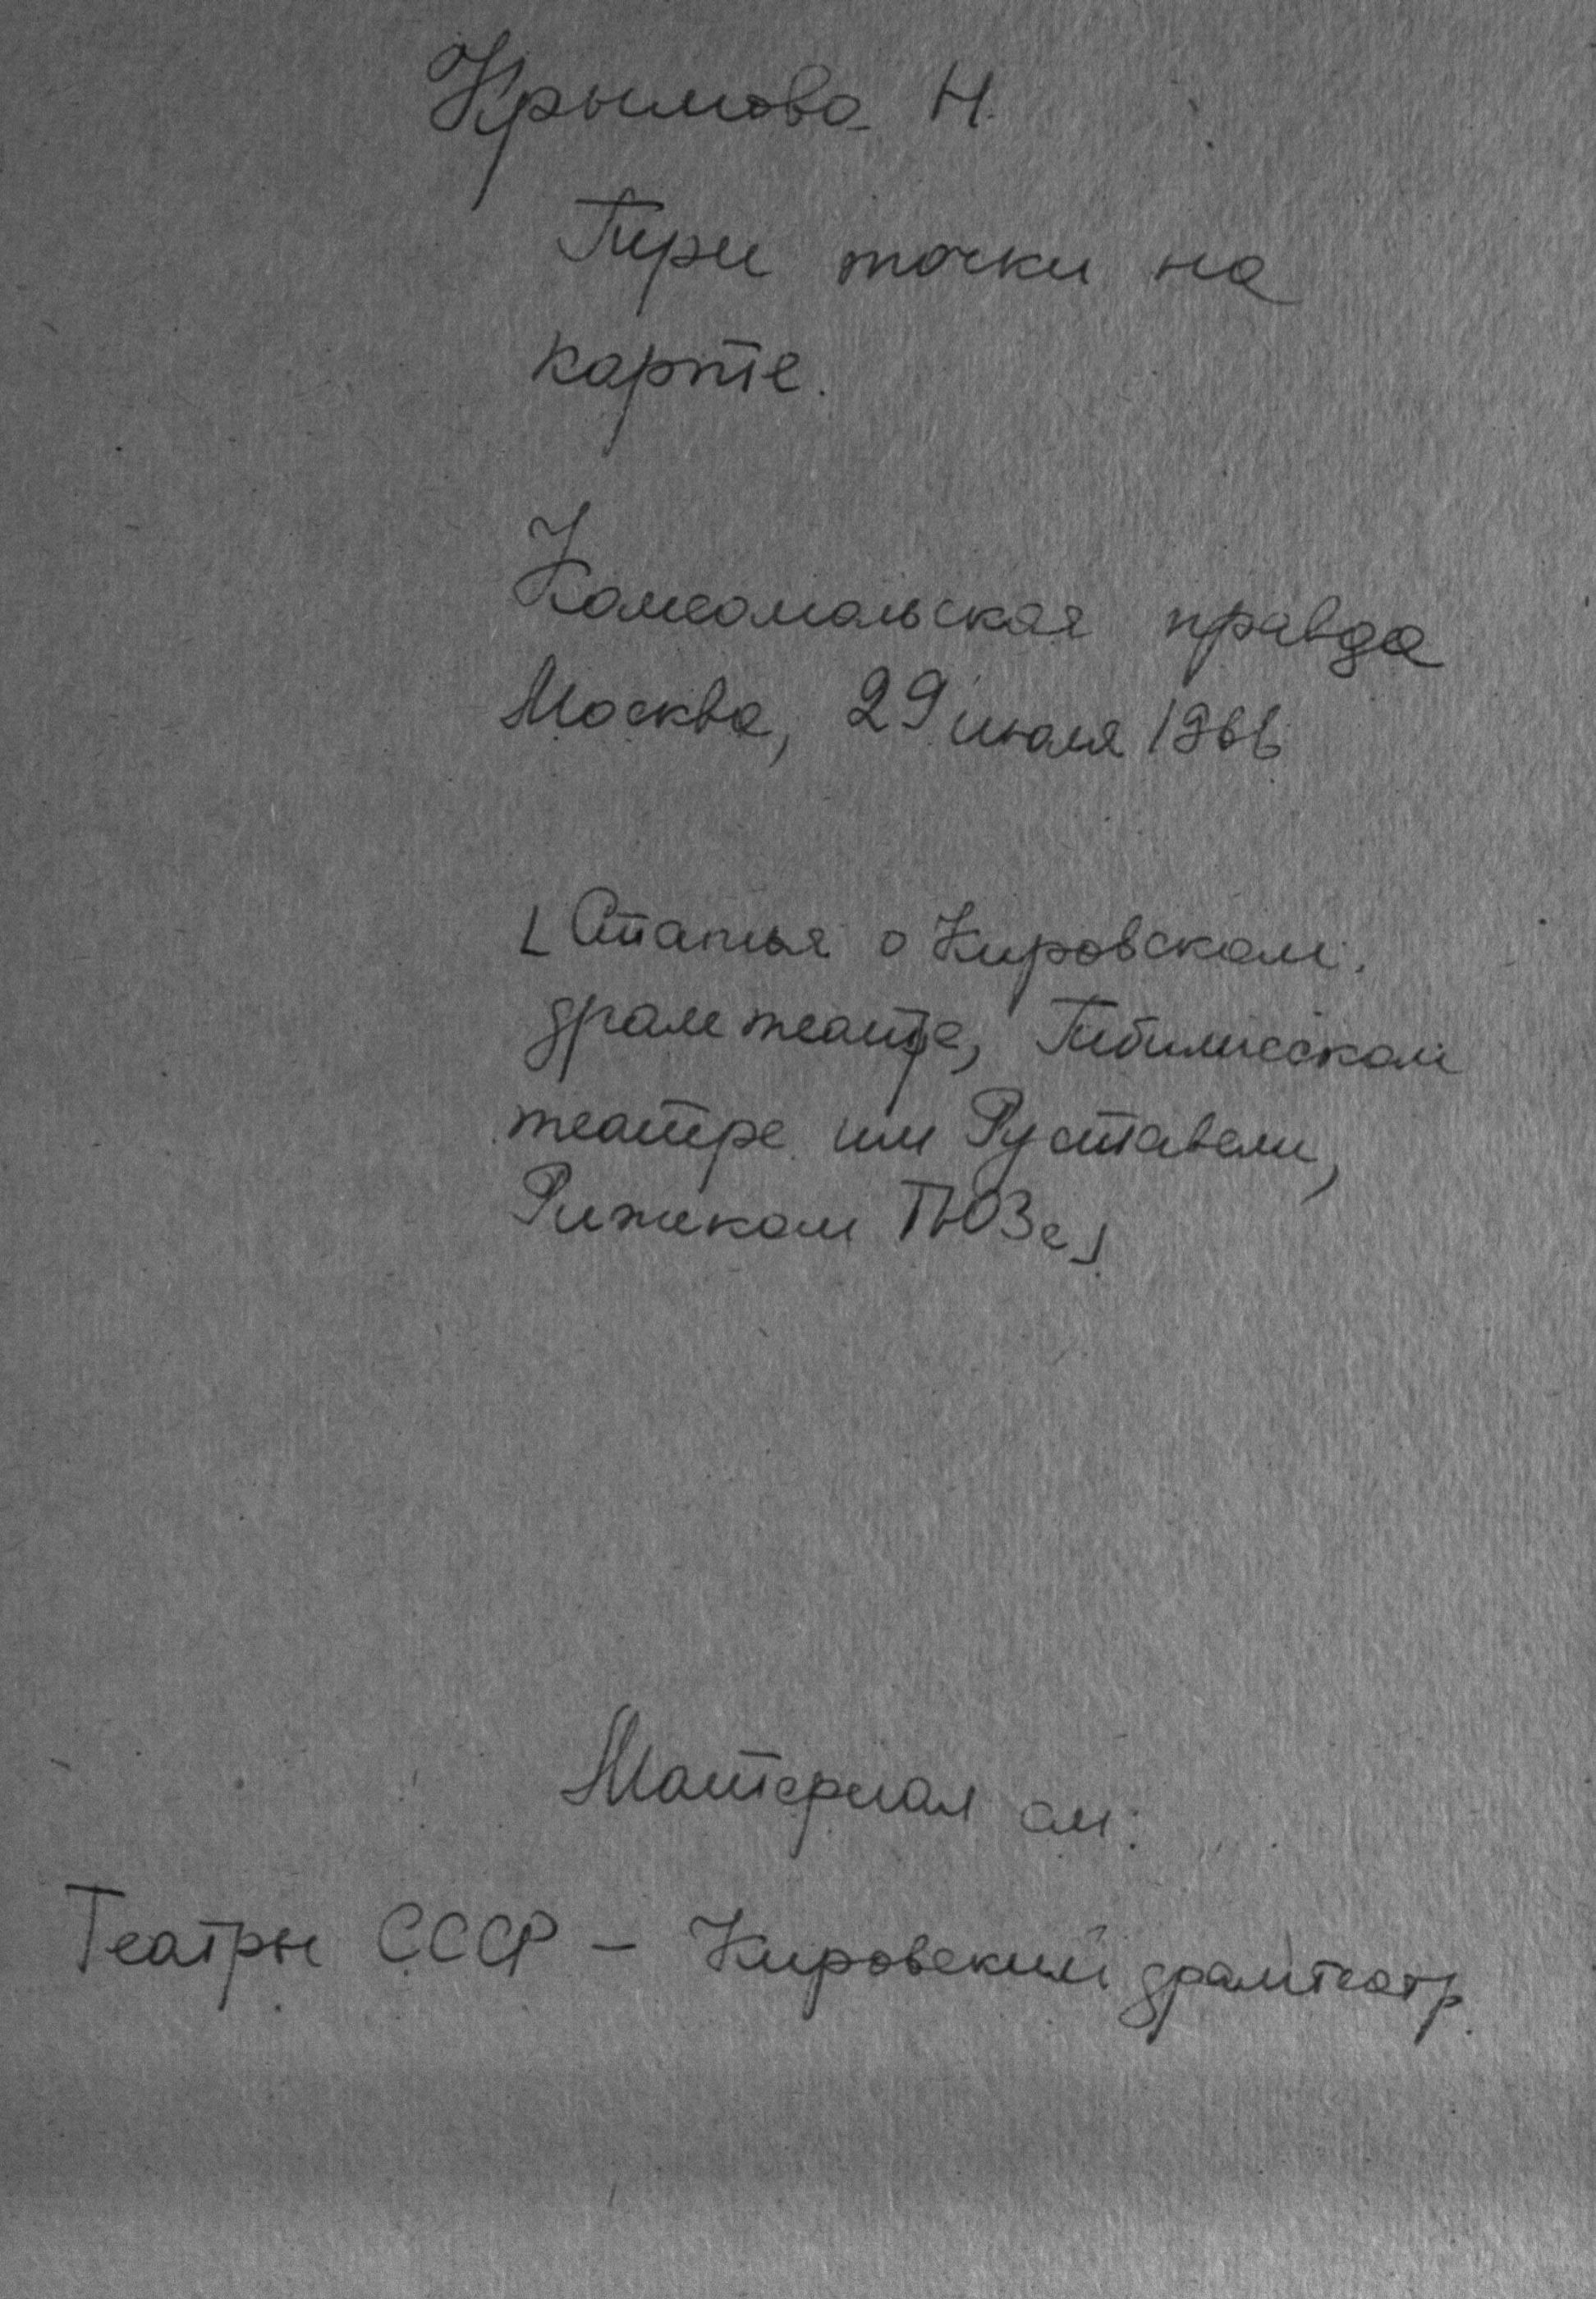 Крымова Н.
Три точки на
карте.
Комсомольская правда
Москва, 29 июля 1966
[Статья о Кировском
драмтеатре, Тбилисском
театре им Руставели,
Рижском ТЮЗе]
Материал см:
Театры СССР – Кировский драмтеатр.